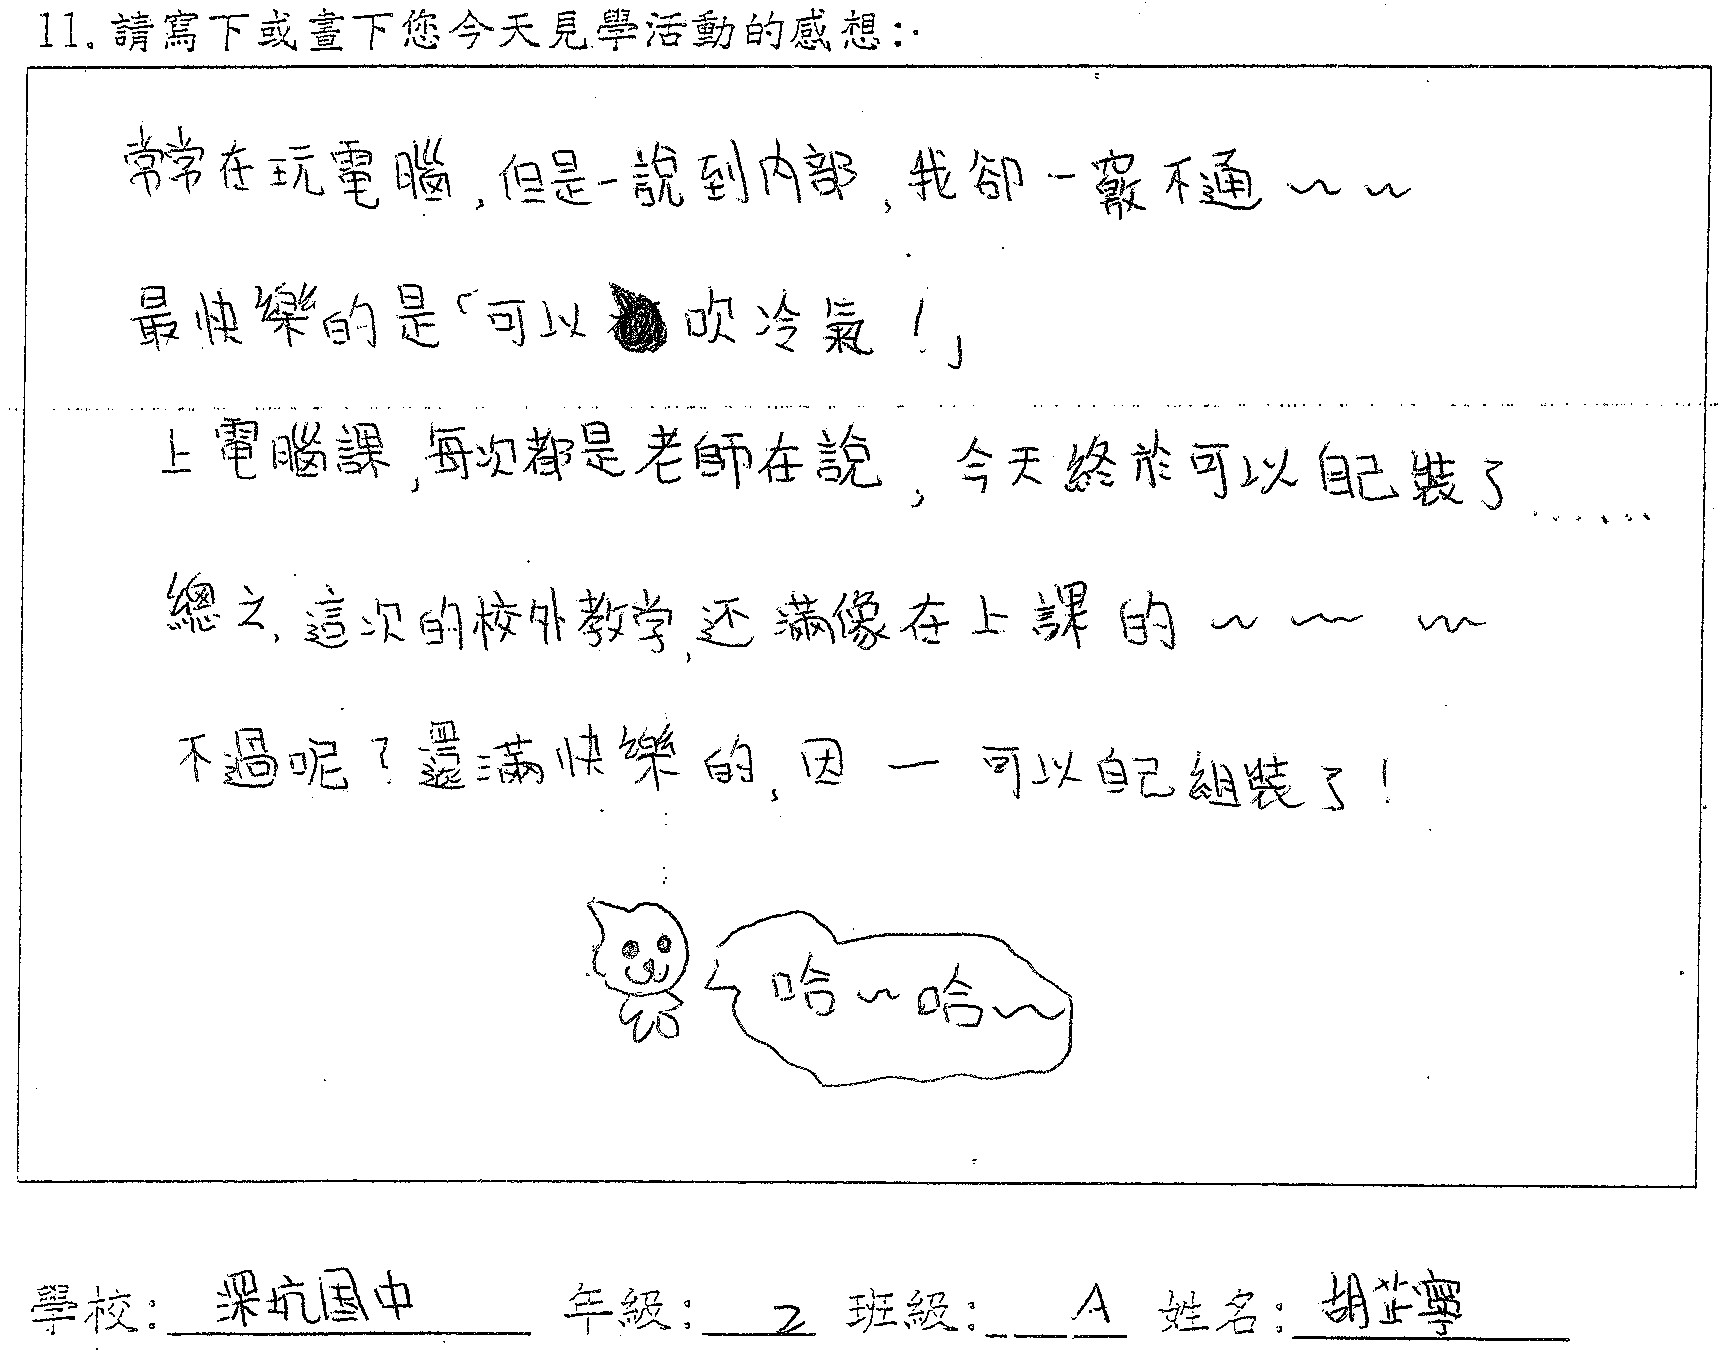 11. 請寫下或畫下您今天見學活動的感想:
常常在玩電腦,但是一說到內部,我卻一竅不通~~
最快樂的是「可以吹冷氣!」
上電腦課,每次都是老師在說,今天終於可以自己裝了......
總之,這次的校外教学,还滿像在上課的~~~
不過呢?還滿快樂的,因一可以自己組裝了!
哈~哈~
學校: 深坑国中 年級: 2 班級: A 姓名: 胡芷寧